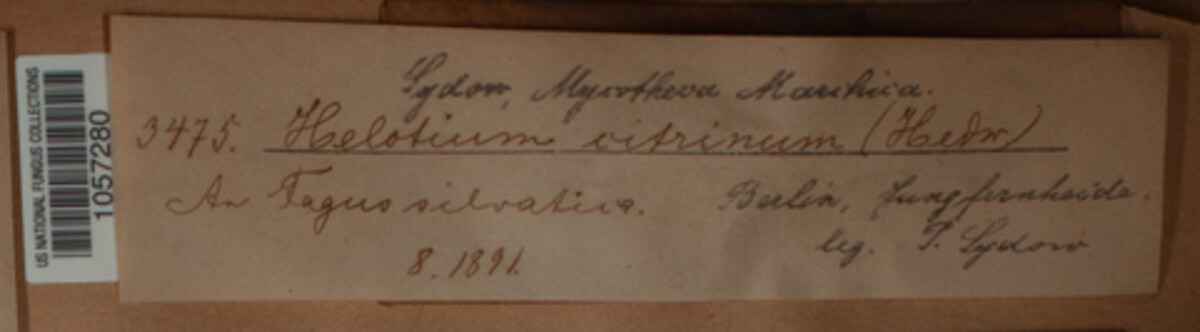 US NATIONAL FUNGUS COLLECTIONS
10572280
Sydow, Mycotheca Marchica.
3475. Helotium citrinum (Hedw)
An Fagus silvatica.
Berlin, Jungfernheide.
leg. P. Sydow
8. 1891.